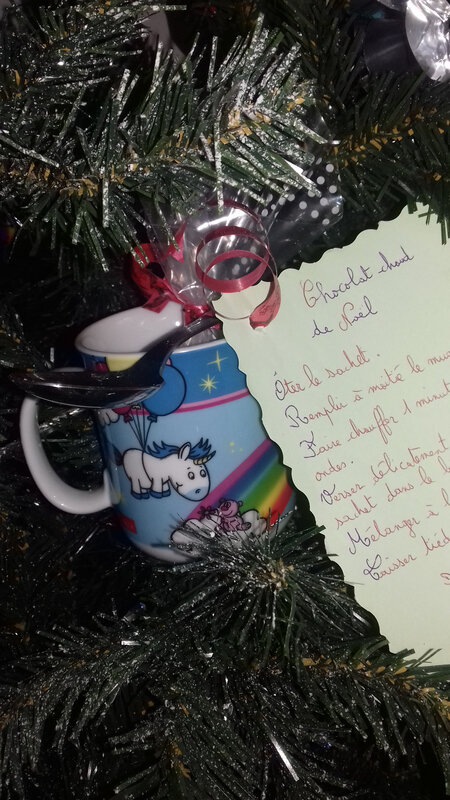 Chocolat chaud
de Noël
Ôter le sachet.
Remplir à moitié le mu
Faire chauffer 1 minut
ondes.
Verser délicatement
sachet dans le l
Mélanger à l
Laisser tiéd